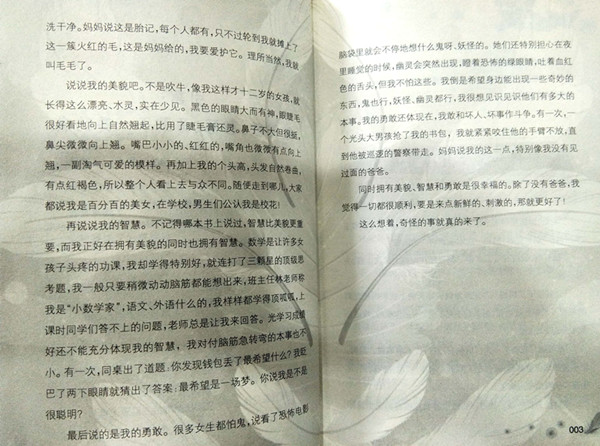 洗干净。妈妈说这是胎记,每个人都有,只不过轮到我就摊上了
这一簇火红的毛,这是妈妈给的,我要爱护它。理所当然,我就
叫毛毛了。
说说我的美貌吧。不是吹牛,像我这样才十二岁的女孩,就
长得这么漂亮、水灵,实在少见。黑色的眼睛大而有神,眼睫毛
很好看地向上自然翘起,比用了睫毛膏还灵。鼻子不大但很挺,
鼻尖微微向上翘。嘴巴小小的、红红的,嘴角也微微有点向上
翘,一副淘气可爱的模样。再加上我的个头高,头发自然卷曲,
有点红褐色,所以整个人看上去与众不同。随便走到哪儿,大家
都说我是百分百的美女,在学校,男生们公认我是校花!
再说说我的智慧。不记得哪本书上说过,智慧比美貌更重
要,而我正好在拥有美貌的同时也拥有智慧。数学是让许多女
孩子头疼的功课,我却学得特别好,就连打了三颗星的顶级思
考题,我一般只要稍微动动脑筋都能想出来,班主任林老师称
我是“小数学家”,语文、外语什么的,我样样都学得顶呱呱,上
课时同学们答不上的问题,老师总是让我来回答。光学习成绩
好还不能充分体现我的智慧,我对付脑筋急转弯的本事也不
小。有一次,同桌出了道题:你发现钱包丢了最希望什么?我眨
巴了两下眼睛就猜出了答案:最希望是一场梦。你说我是不是
很聪明?
最后说的是我的勇敢。很多女生都怕鬼,说看了恐怖电影
脑袋里就会不停地想什么鬼呀、妖怪的。她们还特别担心在夜
里睡觉的时候,幽灵会突然出现,瞪着恐怖的绿眼睛,吐着血红
色的舌头,但我不怕这些。我倒是希望身边能出现一些奇妙的
东西,鬼也行,妖怪、幽灵都行,我很想见识见识他们有多大的
本事。我的勇敢还体现在,我敢和坏人、坏事作斗争。有一次,一
个光头大男孩抢了我的书包,我就紧紧咬住他的手臂不放,直
到他被巡逻的警察带走。妈妈说我的这一点,特别像我没有见
过面的爸爸。
同时拥有美貌、智慧和勇敢是很幸福的。除了没有爸爸,我
觉得一切都很顺利,要是来点新鲜的、刺激的,那就更好了!
这么想着,奇怪的事就真的来了。
003